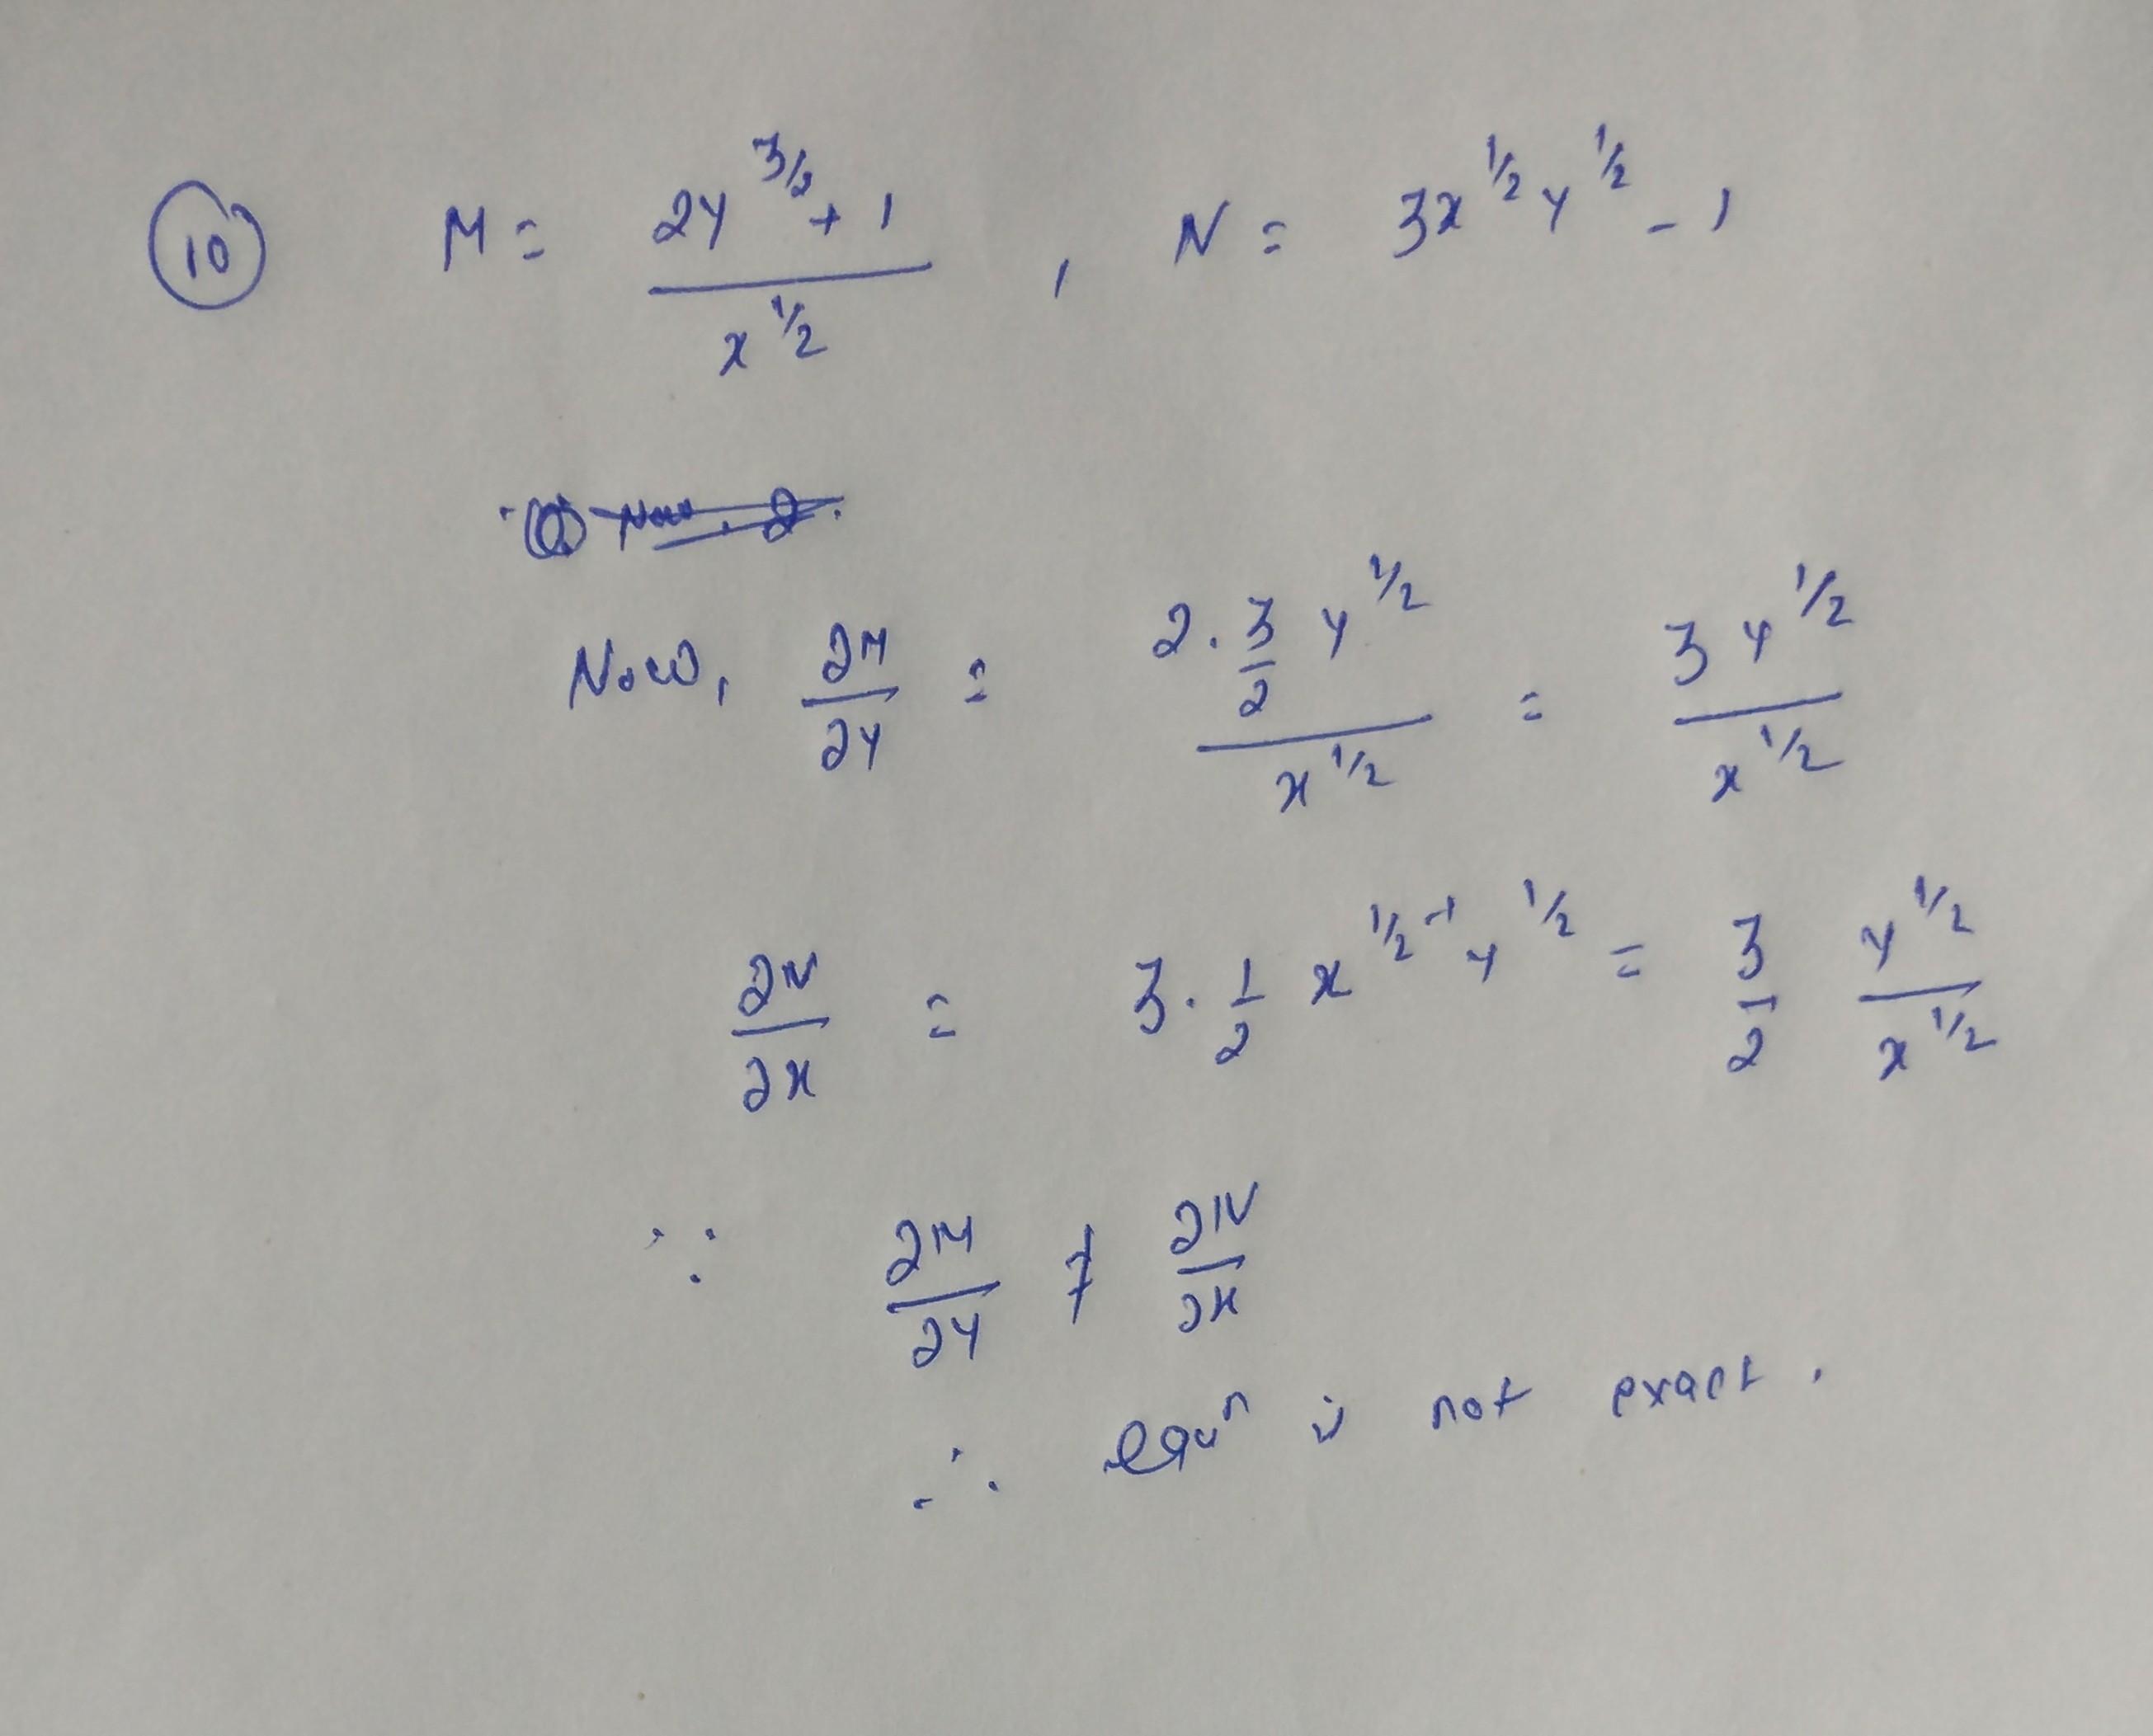 (10) M = (2y^{3/2} + 1) / x^{1/2} , N = 3x^{1/2} y^{1/2} - 1
Now, ∂M/∂y = (2 · 3/2 y^{1/2}) / x^{1/2} = 3y^{1/2} / x^{1/2}
∂N/∂x = 3 · 1/2 x^{1/2 - 1} y^{1/2} = 3/2 y^{1/2} / x^{1/2}
∵ ∂M/∂y ≠ ∂N/∂x
∴ equⁿ is not exact.